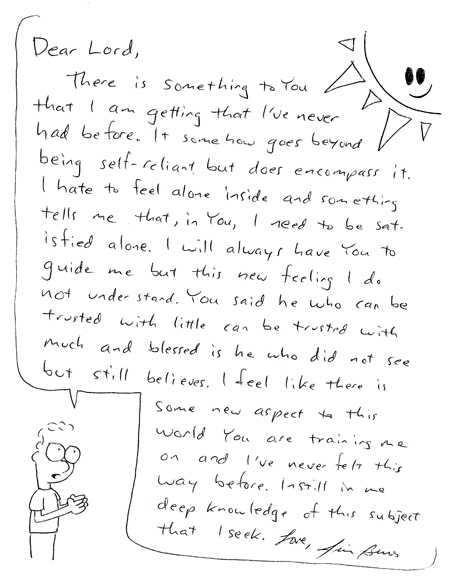 Dear Lord,
There is something to You
that I am getting that I've never
had before. It somehow goes beyond
being self-reliant but does encompass it.
I hate to feel alone inside and something
tells me that, in You, I need to be sat-
isfied alone. I will always have You to
guide me but this new feeling I do
not understand. You said he who can be
trusted with little can be trusted with
much and blessed is he who did not see
but still believes. I feel like there is
some new aspect to this
world You are training me
on and I've never felt this
way before. Instill in me
deep knowledge of this subject
that I seek. Love, Jim